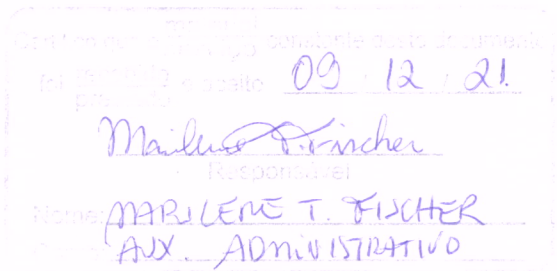 constante deste documento
foi aceito 09 / 12 / 21
Marilene T. Fischer
Responsável
Nome: MARILENE T. FISCHER
AUX. ADMINISTRATIVO